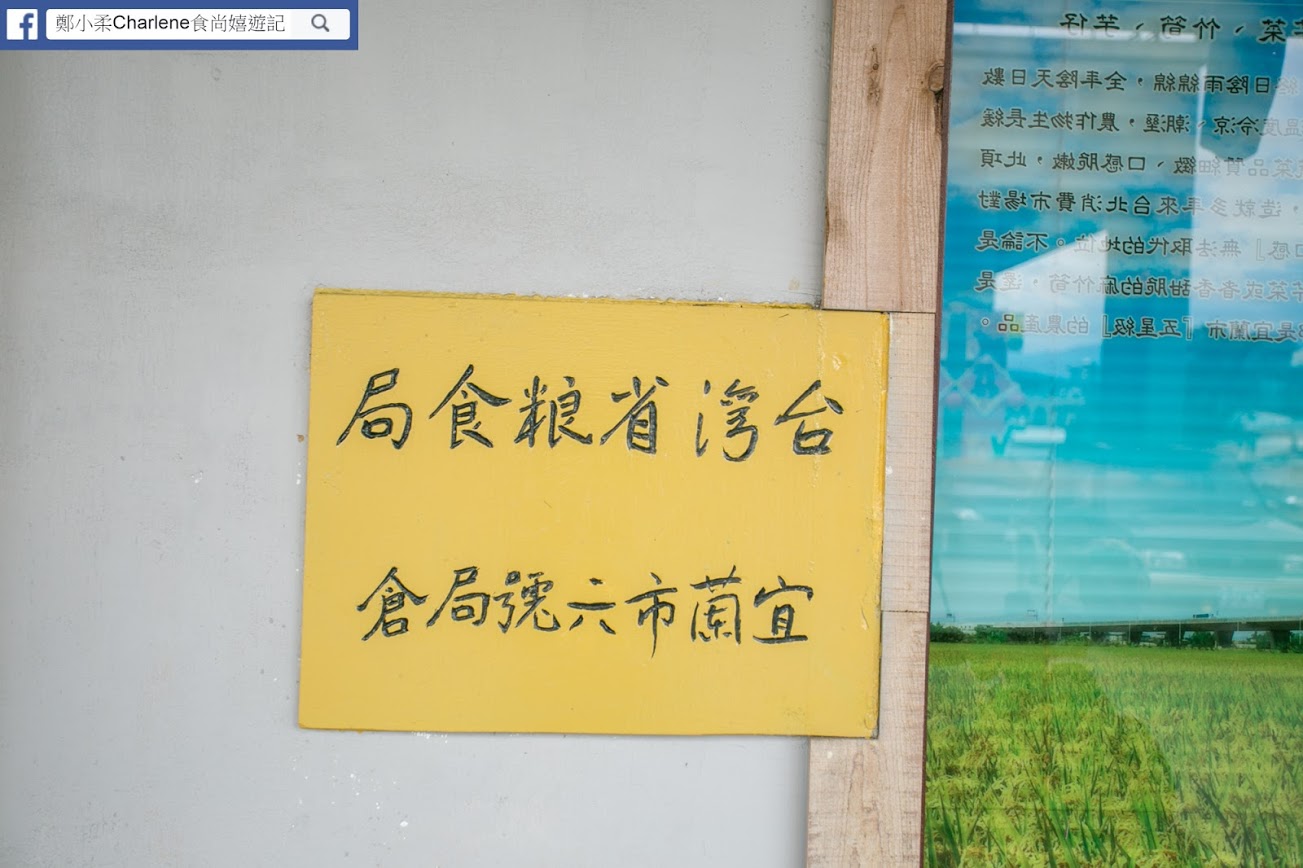 鄭小柔Charlene食尚嬉遊記
台湾省粮食局
宜蘭市六號局倉
菜、竹筍、芋仔
日陰雨綿綿，全年陰天日數
溫度冷涼、潮溼，農作物生長緩
菜品質細緻、口感脆嫩，此項
，造就多年來台北消費市場對
口感』無法取代的地位。不論是
菜或者香甜脆的麻竹筍，還是
是宜蘭市『五星級』的農產品。